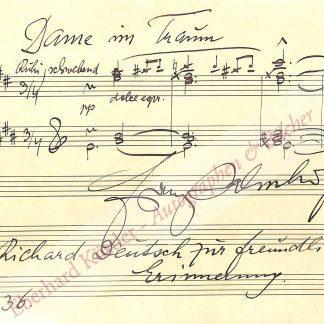 Dame im Traum
Ruhig schwebend
3/4
pp
dolce espr.
3/4
Richard Deutsch zur freundli
Erinnerung.
36
Eberhard Köstler - Autographen & Bücher